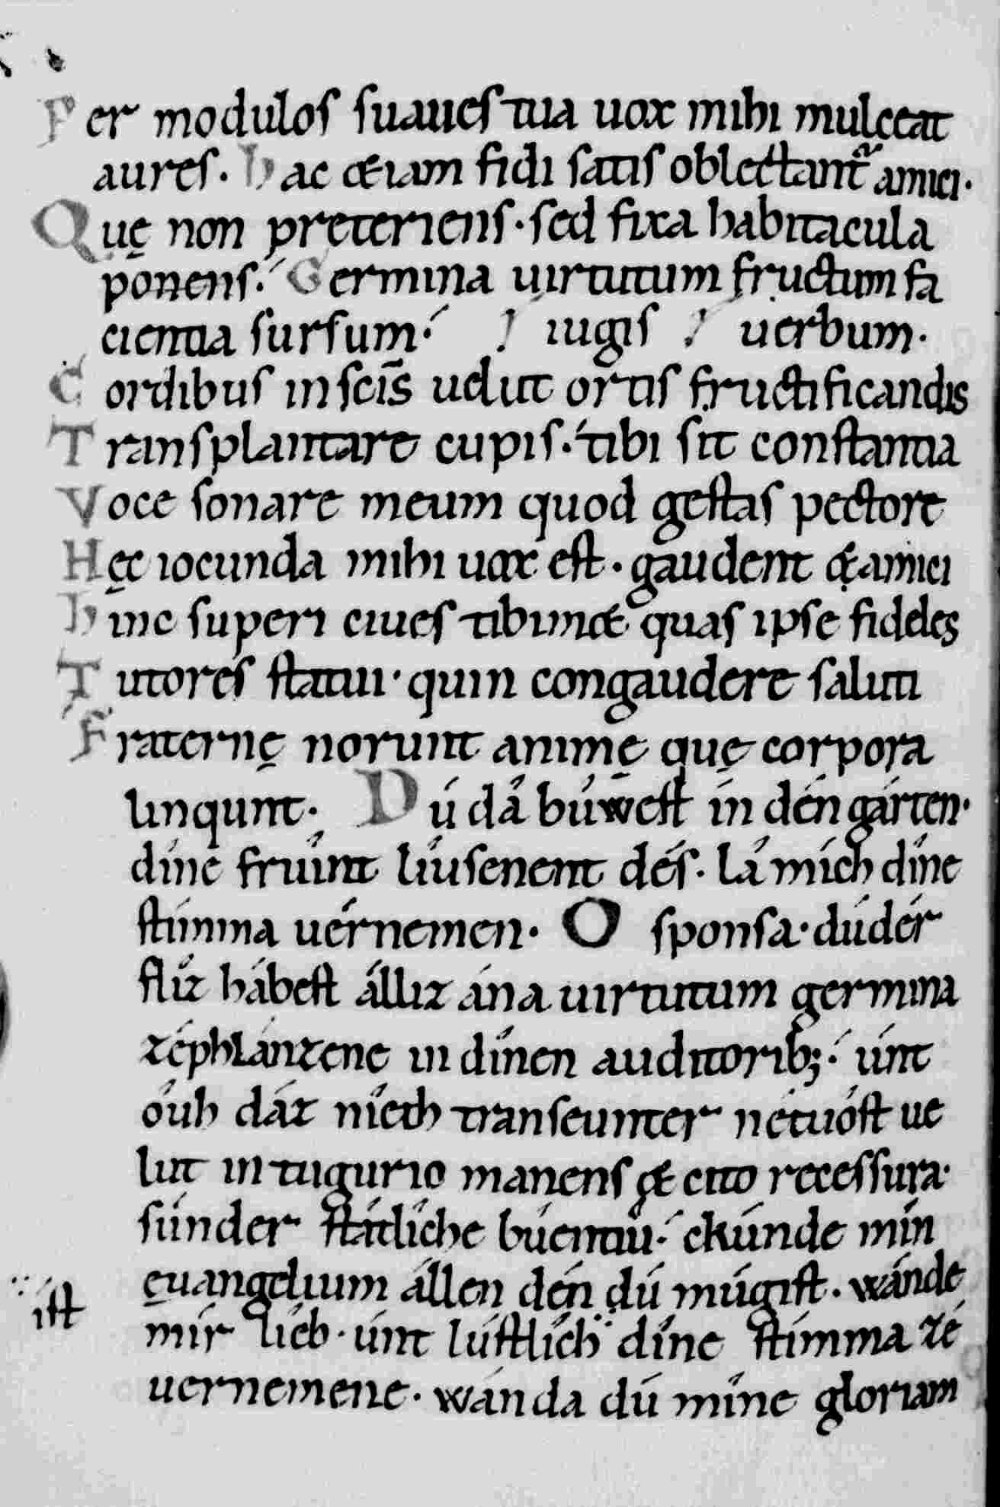 Per modulos suaues tua uox mihi mulceat
aures. Hac etiam fidi satis oblectantᷓ amici.
Quę non preteriens. sed fixa habitacula
ponens. Germina uirtutum fructum fa
cientia sursum. iugis uerbum.
Cordibus insciūs uelut ortis fructificandis
Transplantare cupis. tibi sit constantia
Voce sonare meum quod gestas pectore
Hęc iocunda mihi uox est. gaudent & amici
hinc superi ciues tibimet quas ipse fideles
Tutores statui. quin congaudere saluti
Fraternę norunt animę quę corpora
linqunt. Dú dâ búwest ín dén gárten.
díne fruínt líusenent dés. lâ mích díne
stímma uérnemen. O sponsa. dú dér
flíz hábest állíz ána uirtutum germina
zéphlánzene in dínen auditorib; únt
óuh dáz níeth transeunter nétuóst ue
lut in tugurio manens & cito recessura.
súnder státlíche búentiu. chúnde mín
ęuangelium állen dén dú múgist. wánde
íst
mír líeb. únt lústlích díne stímma zé
uernemene. wánda dú míne gloriam